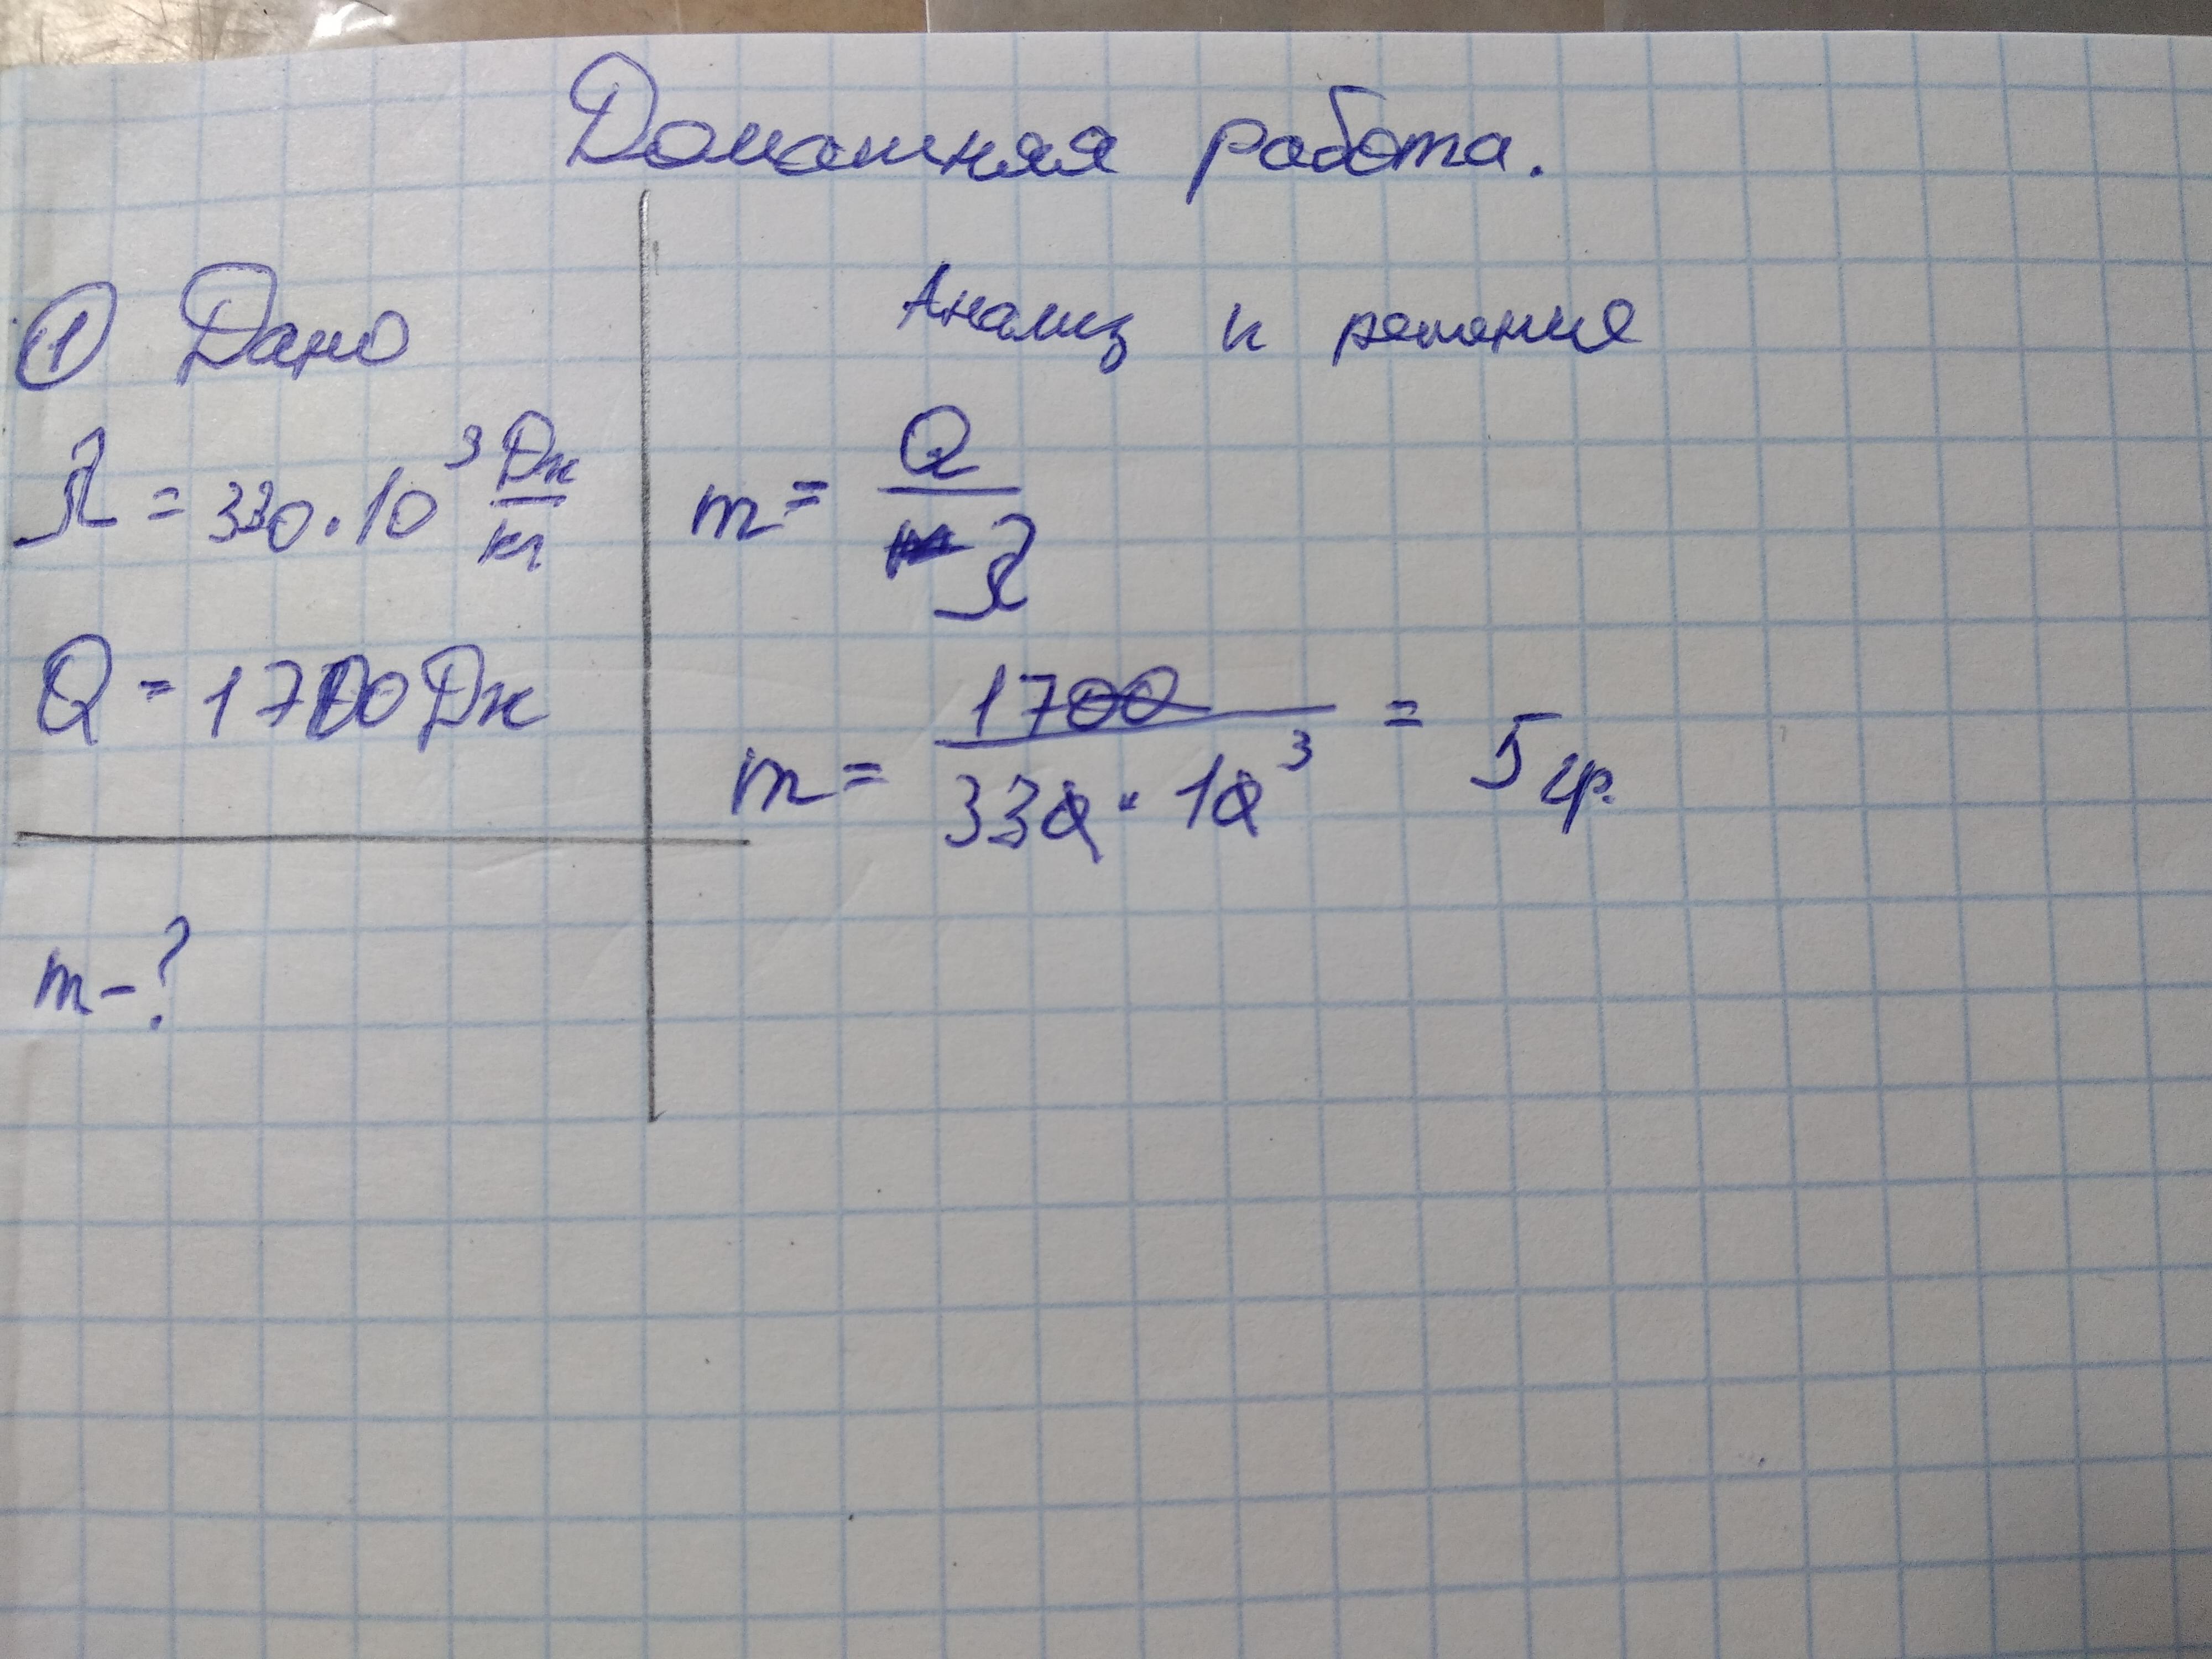 Домашняя работа.
① Дано
λ = 330 · 10³ Дж/кг
Q = 1700 Дж
m - ?
Анализ и решение
m = Q/λ
m = 1700/330 · 10³ = 5 гр.